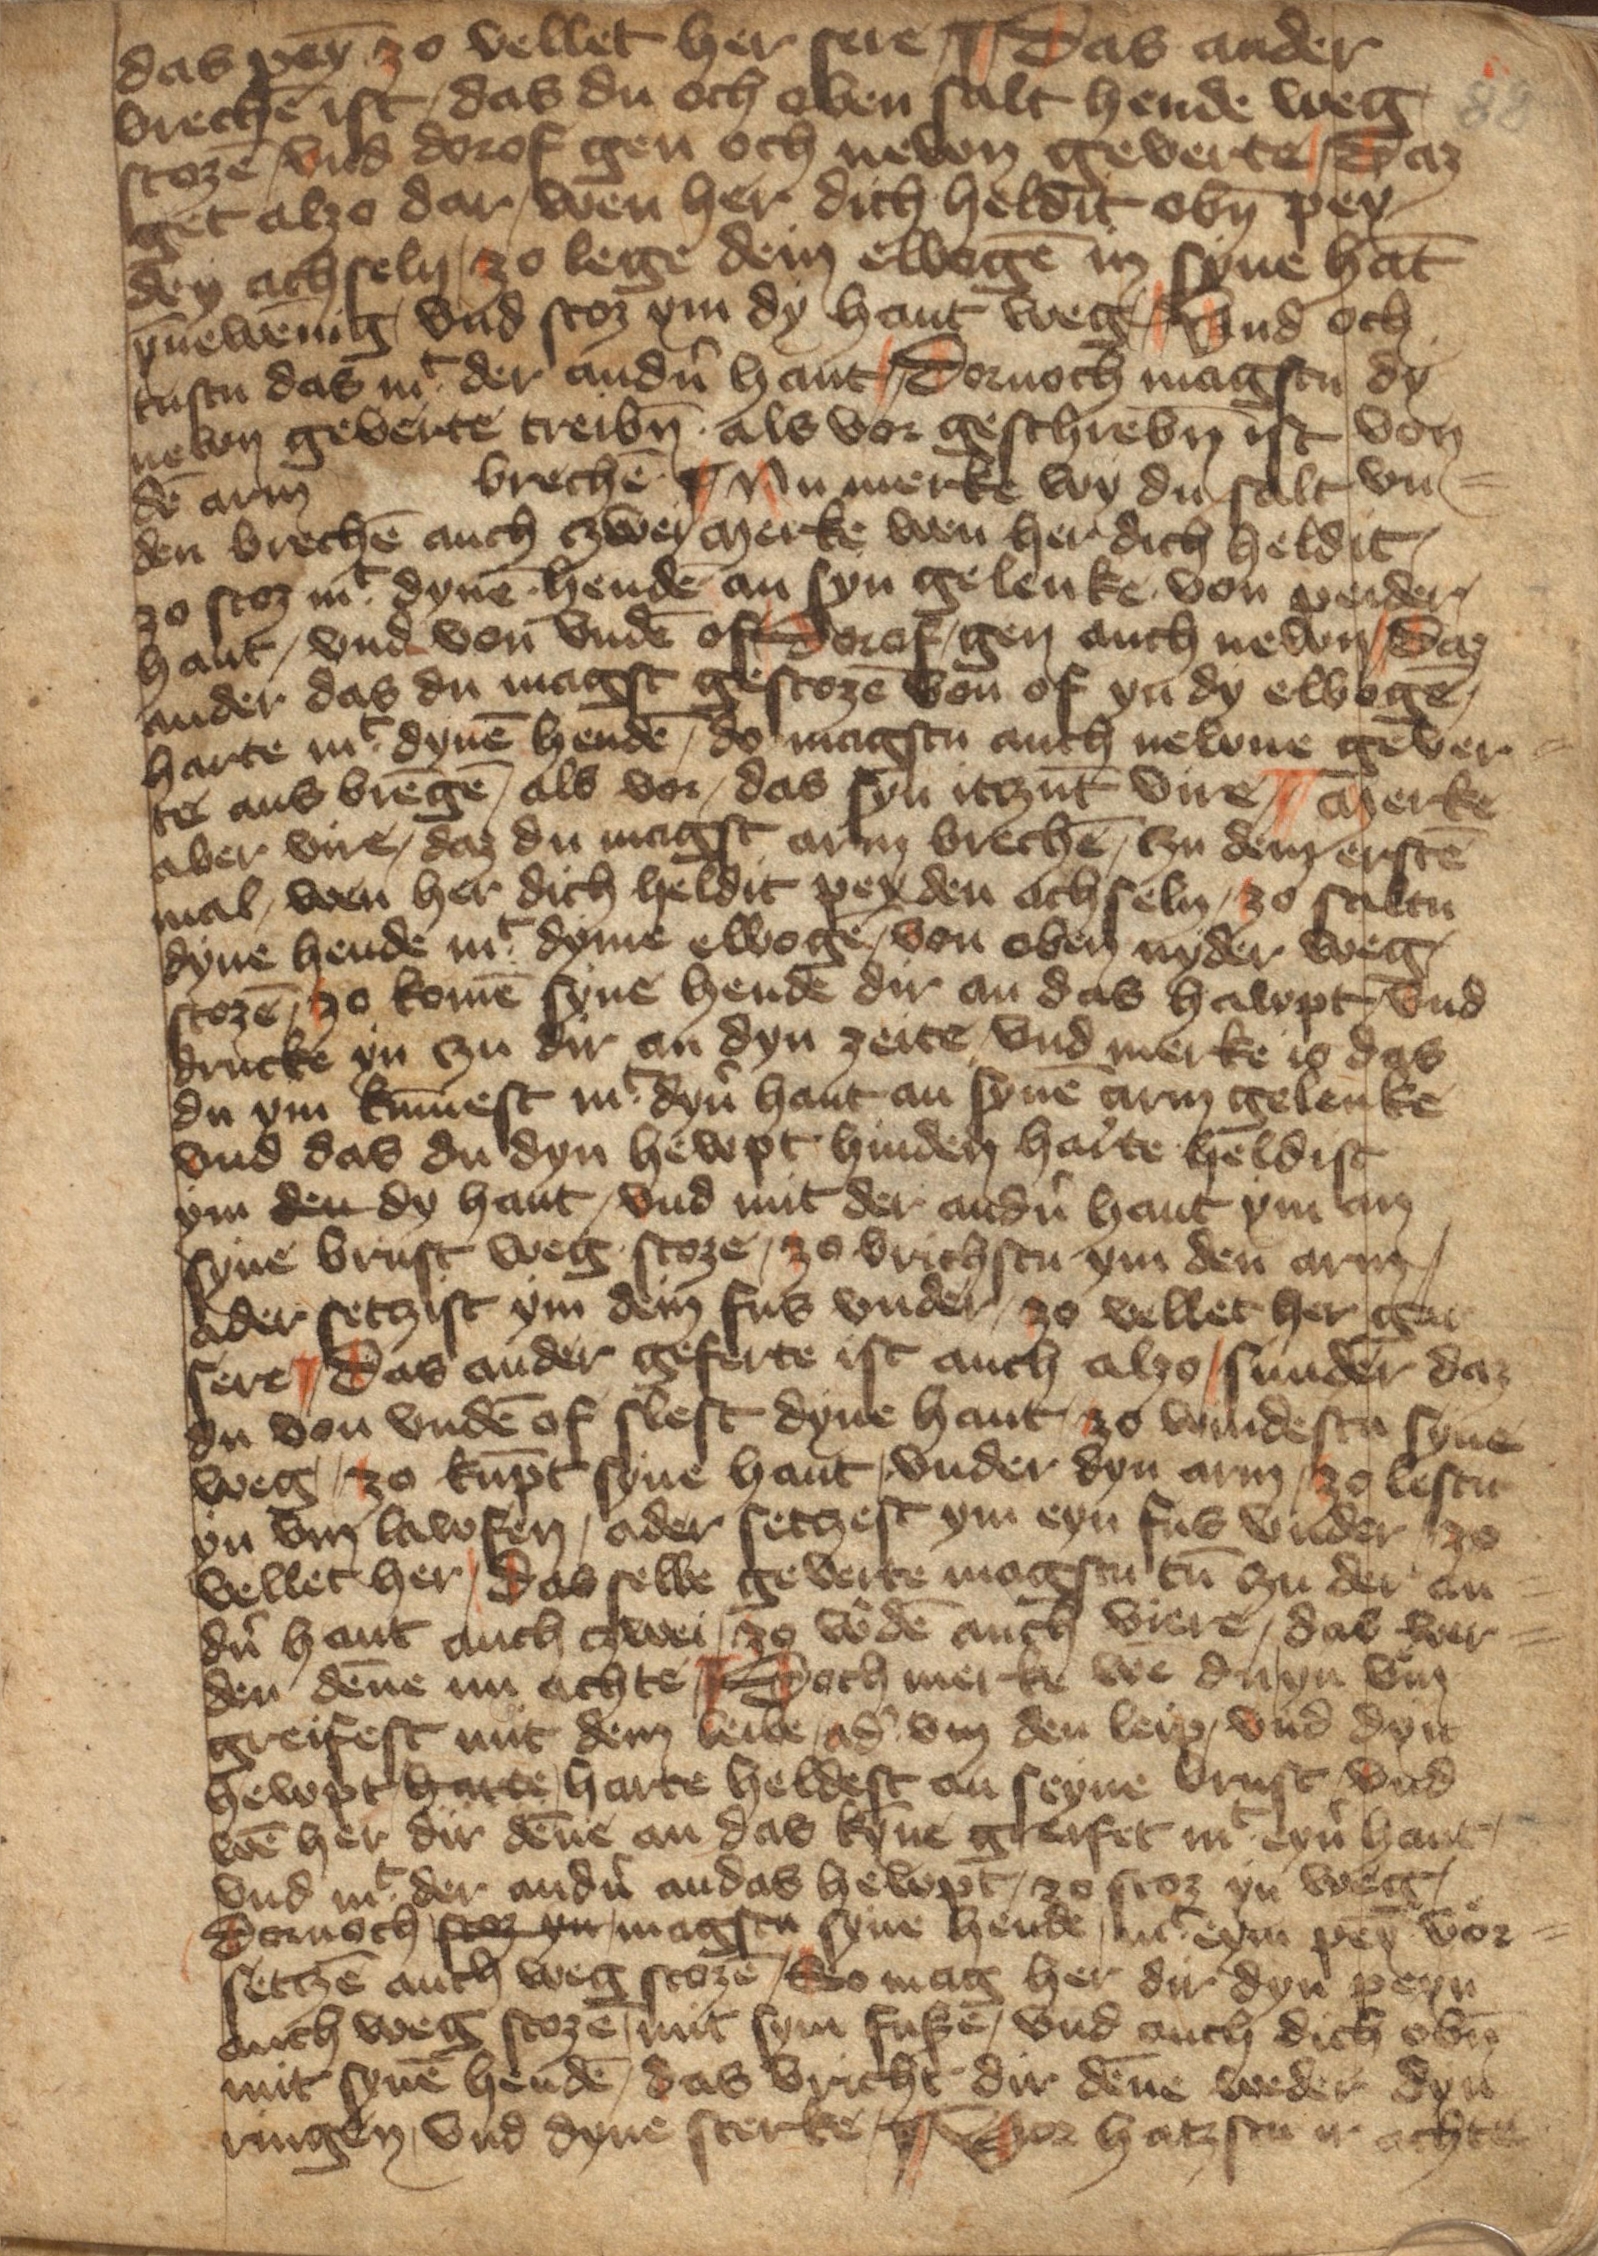 das pey zo vellet her sere ¶ Das ander
brechē ist / das du och oben salt hende weg
stozē / vnd dorof gen och newn geverte / Daz
get alzo dar / wen her dich heldit obn̄ pey
dey achseln / zo lege dein elbogē in syne hāt
ynnewēnig / vnd stoz ym dy hant weg / Vnd och
tustu das mͭ der andn̄ hant / Dornoch magstu dy
newn geverte treibn̄ als vor geschriebn̄ ist von
dē arm brechē ¶ Nu merke wy du salt vn=
den brechē auch czwei / Merke wen her dich heldit /
zo stoz mͭ dynē hendē an syn gelenke von peider
hant / vnd von vndē of Dorof / gen auch newn / Daz
ander das du magst gestozē von of yn dy elbogē /
harte mͭ dynē hendē / do magstu auch newne gever=
te aus brēgē / als vor / das syn itzūt vire ¶ Merke
aber vire / daz du magst arm brechē / zu dem erstē
mal / wen her dich heldit pey den achseln / zo saltu
dyne hende mͭ dyme elboge / von oben nyder weg
stozē / zo komē syne hendē dir an das hawpt / vnd
drucke yn zu dir an dyn zeite / vnd merke is das
du ym kūmest mͭ dyn̄ hant an synē arm gelenke
vnd das du dyn hewpt hinden harte heldist
ym den dy hant / vnd mit der andn̄ hant ym an
syne brust weg stoze / zo brichstu ym den arm /
ader setzist ym dein fus vnder / zo vellet her gar
sere ¶ Das ander geferte ist auch alzo / sunder daz
du von vndē of slest dyne hant / zo windestu syne
weg / zo kūpt syne hant / vnder dyn arm / zo lestu
yn vm lawfen / ader setzest ym eyn fus vnder / zo
vellet her / das selbe geverte mogstu tūn zu der an=
dn̄ hant auch czwei / zo wdē auch viere / das wer=
den dēne nu achte ¶ Doch merke wē du yn vm
greifest mit dem leibe / ad̄ vm den leip / vnd dyn
hewpt harte / harte heldest an seyne brust / vnd
wē her dir dēne an das kyne greifet mͭ eyn̄ hant /
vnd mͭ der andn̄ an das hewpt / zo stoz yn weg /
Dornoch stoz yn magstu syne hende mͭ eym pey vor=
setzē auch weg stozē / So mag her dir dyn peyn
auch weg stozē / mit sym fuszē / vnd auch dich obn̄
mit synē hendē / das bricht dir dēne weder dyn
ringen / vnd dyne sterke ¶ Vor hatzstu ir achte
88